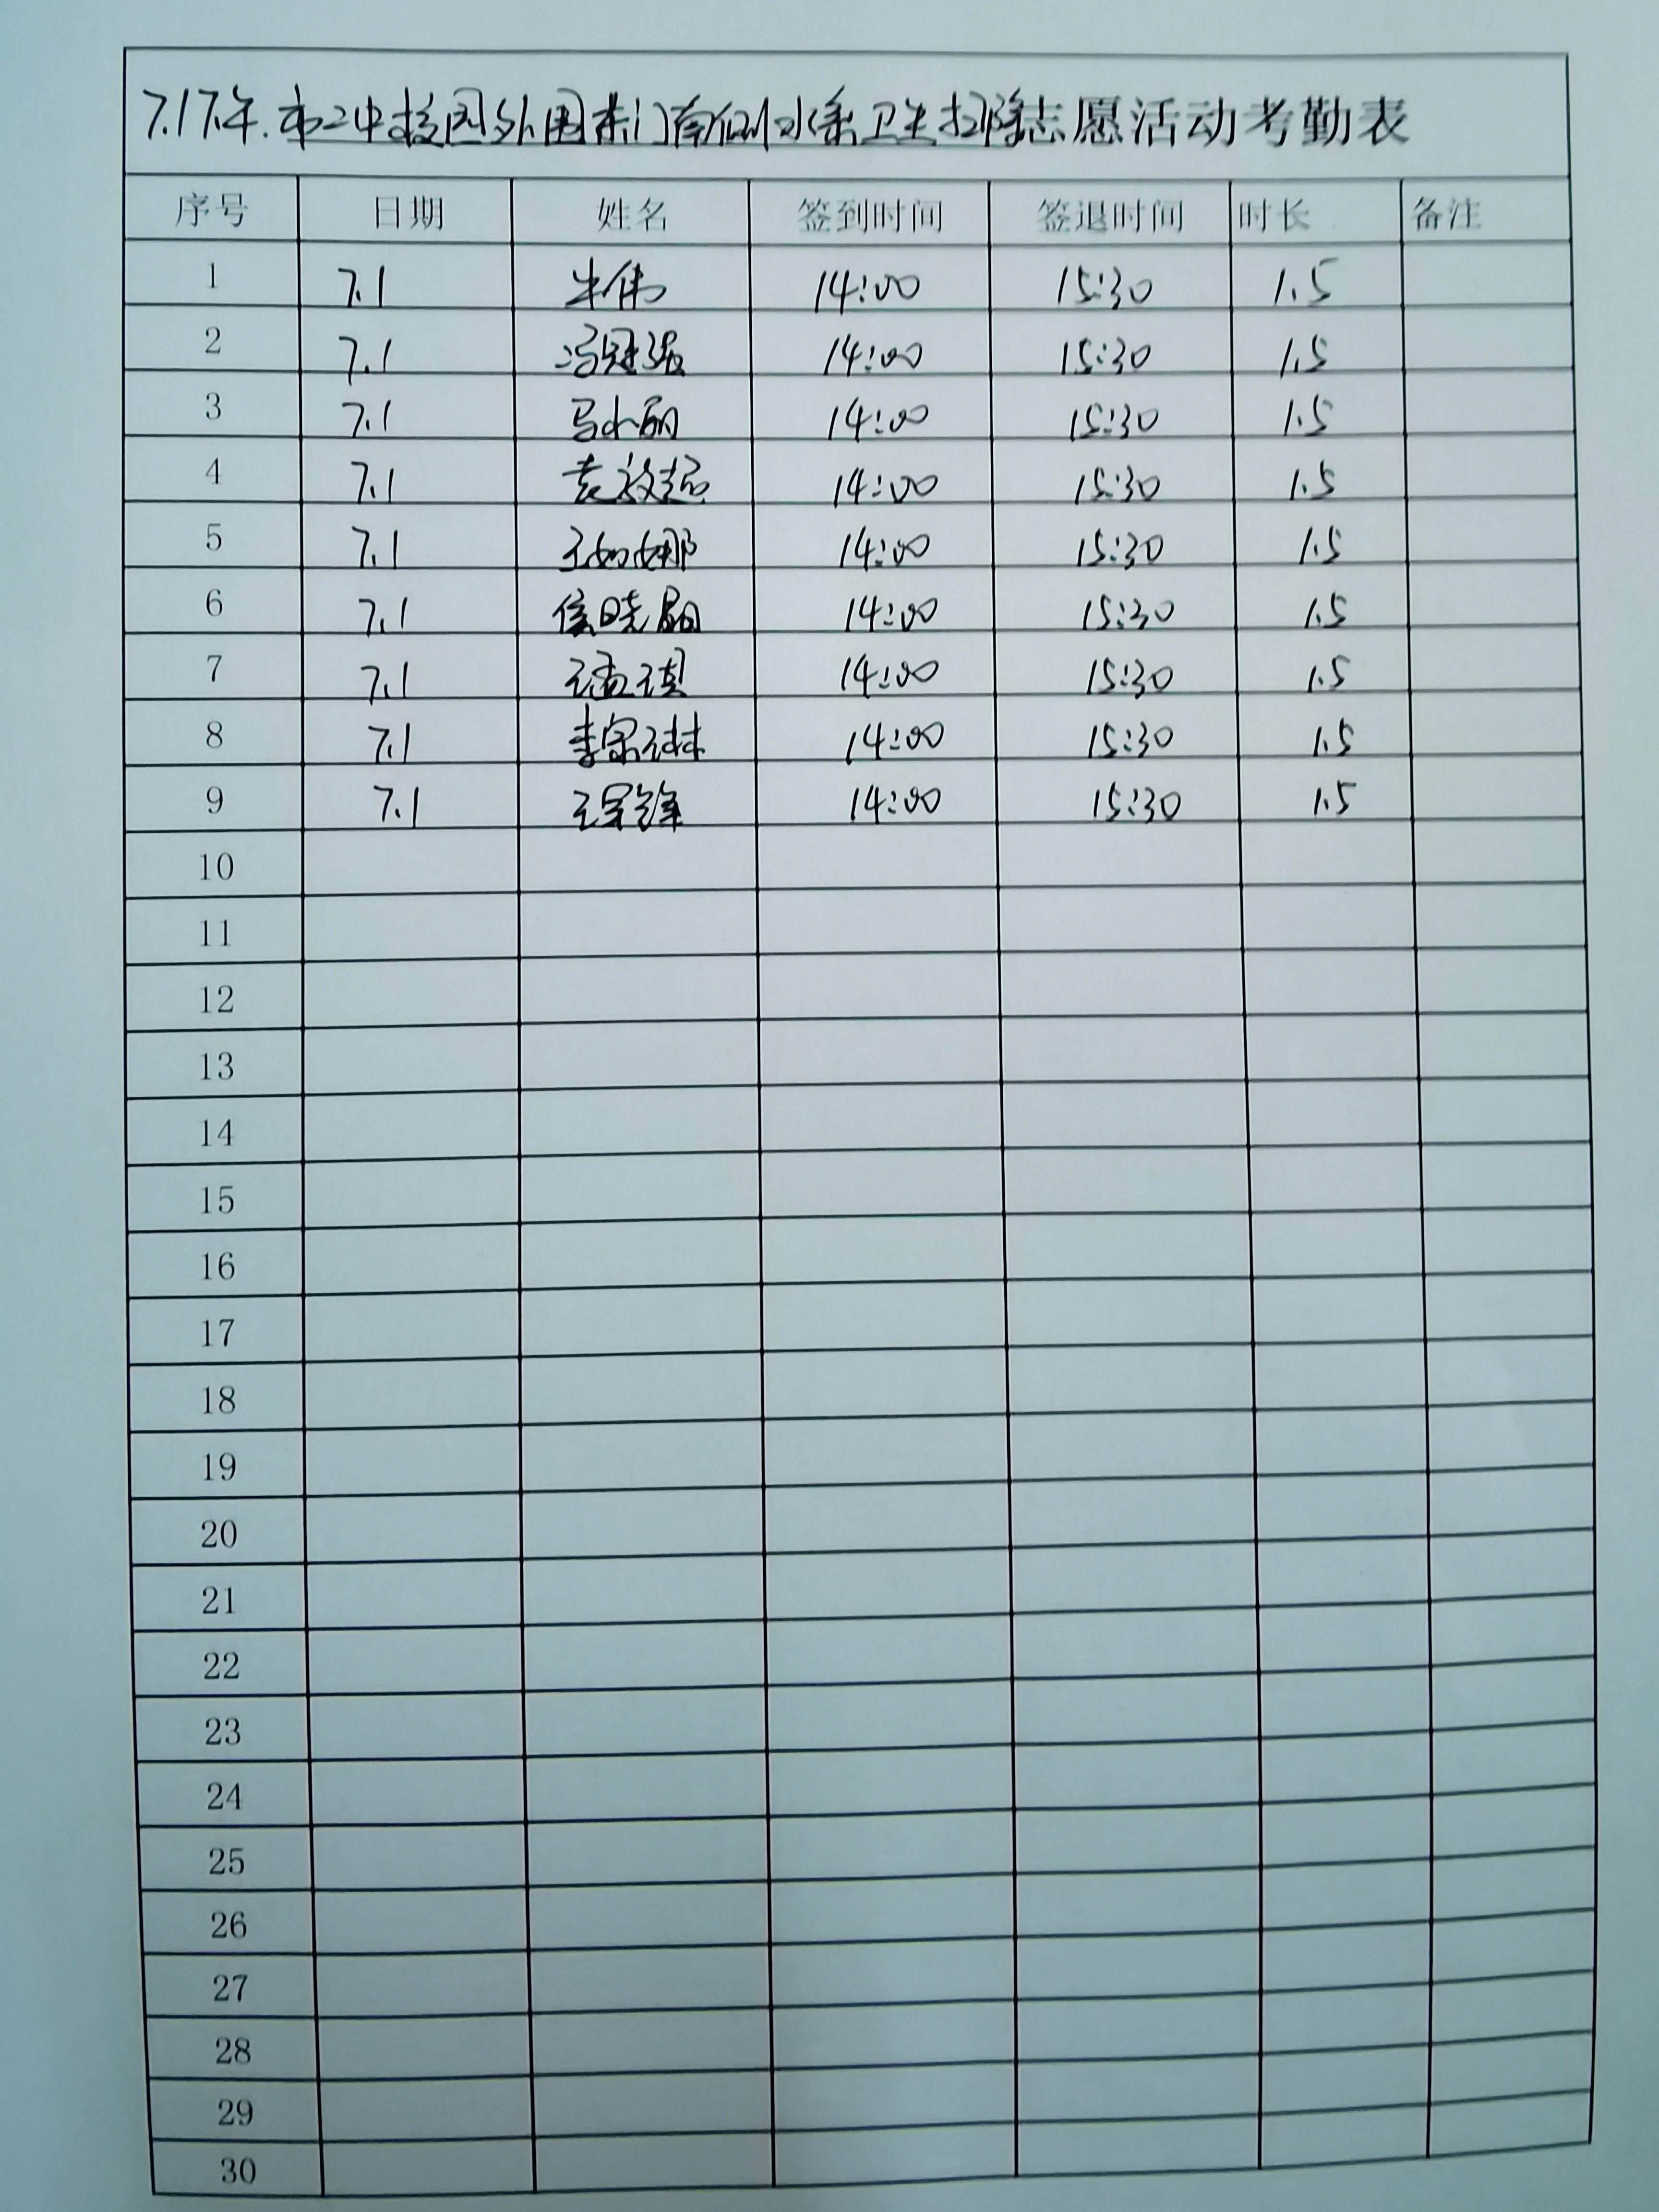 7.1下午.市二中校园外围东门南侧水系卫生扫除志愿活动考勤表
序号 日期 姓名 签到时间 签退时间 时长 备注
1 7.1 牛伟 14:00 15:30 1.5
2 7.1 冯冠强 14:00 15:30 1.5
3 7.1 马小丽 14:00 15:30 1.5
4 7.1 袁毅超 14:00 15:30 1.5
5 7.1 王如娜 14:00 15:30 1.5
6 7.1 侯晓娟 14:00 15:30 1.5
7 7.1 王孟琪 14:00 15:30 1.5
8 7.1 李宗琳 14:00 15:30 1.5
9 7.1 王军锋 14:00 15:30 1.5
10
11
12
13
14
15
16
17
18
19
20
21
22
23
24
25
26
27
28
29
30